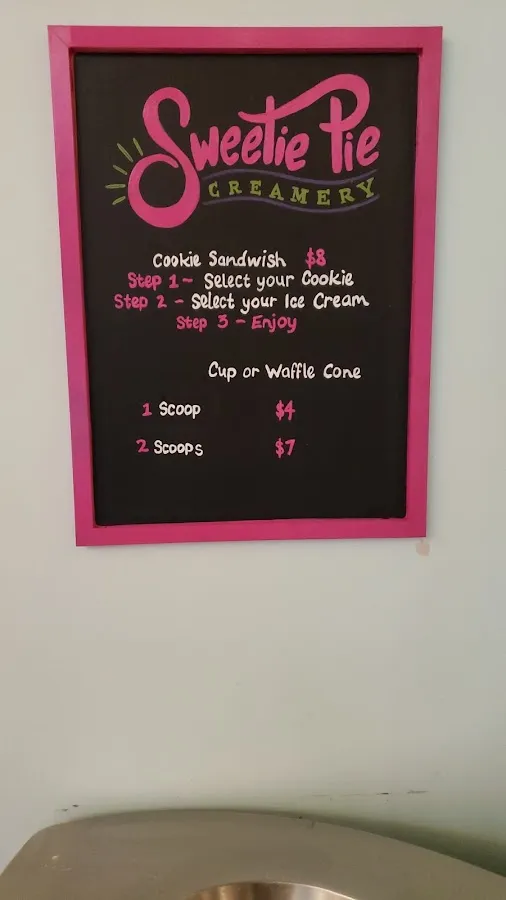 Sweetie Pie
CREAMERY
Cookie Sandwish $8
Step 1 - Select your Cookie
Step 2 - Select your Ice Cream
Step 3 - Enjoy
Cup or Waffle Cone
1 Scoop $4
2 Scoops $7